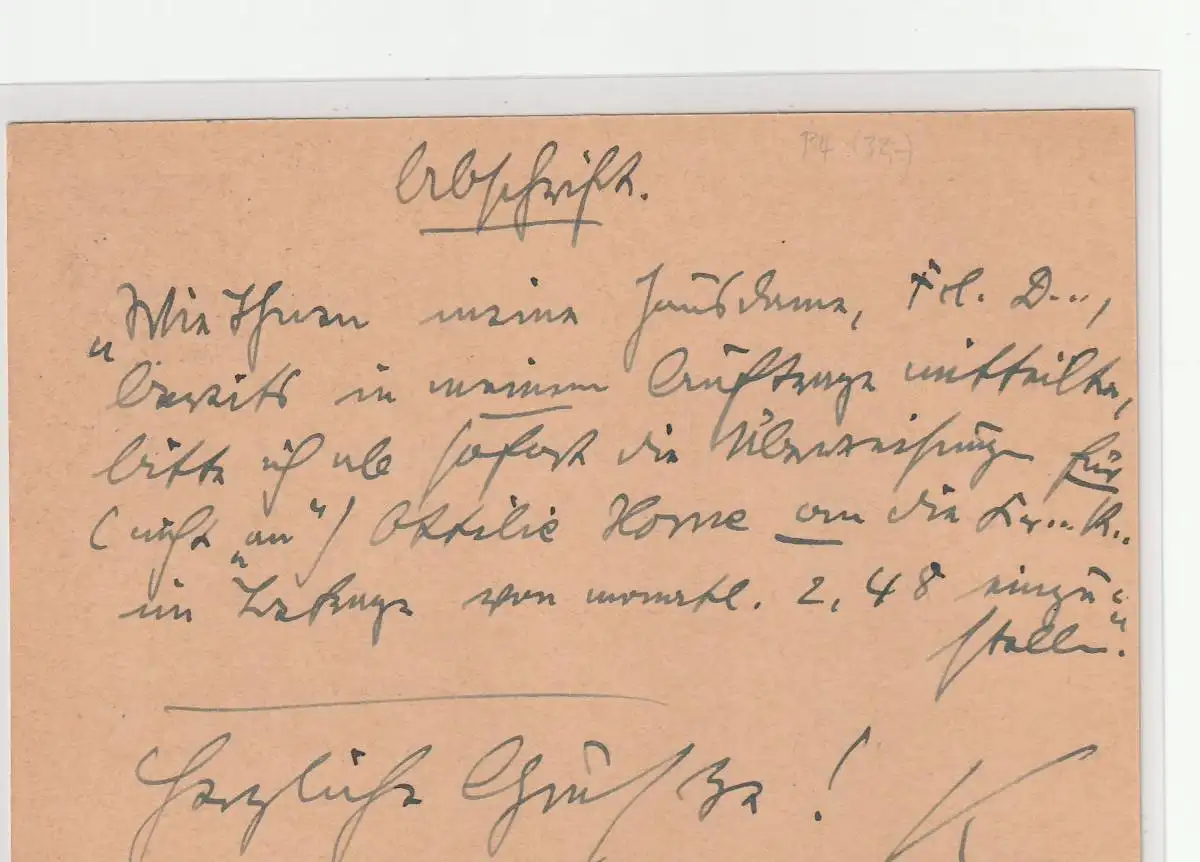 P4 (32,-)
Abschrift.
„Wie Ihnen meine Hausdame, Frl. D..,
bereits in meinem Auftrage mitteilte,
bitte ich ab sofort die Überweisung für
(nicht „an“) Ottilie Horne an die Kr... K..
im Betrage von monatl. 2,48 einzu-
stellen“.
Herzliche Grüße!